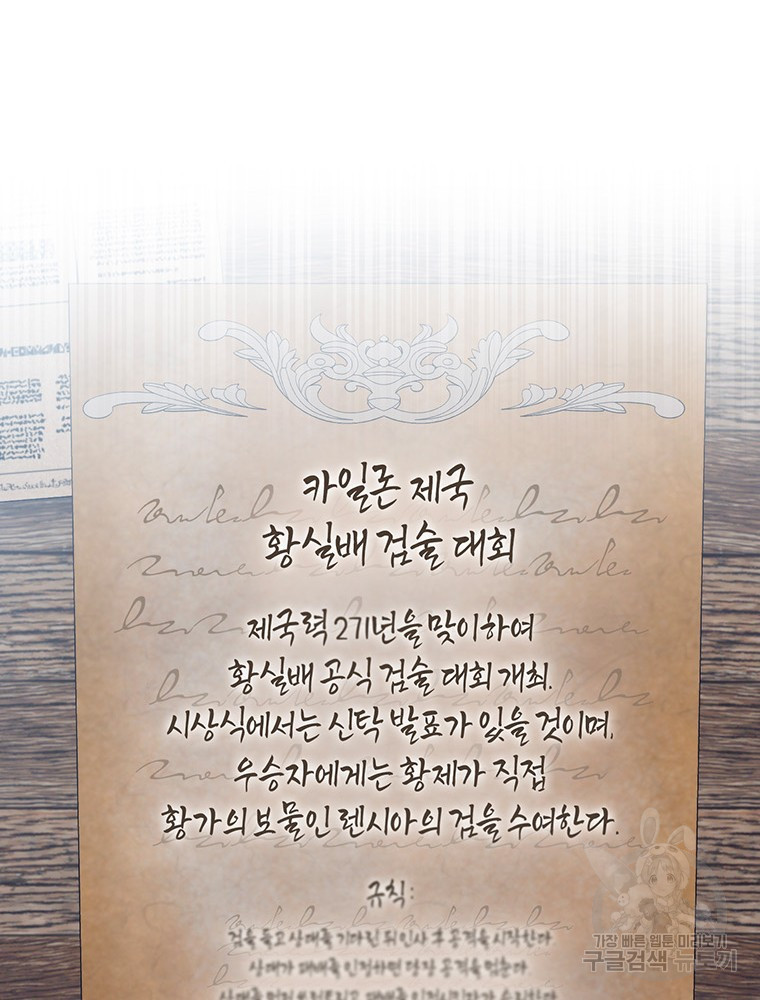 카일론 제국
황실배 검술 대회
제국력 271년을 맞이하여
황실배 공식 검술 대회 개최.
시상식에서는 신탁 발표가 있을 것이며,
우승자에게는 황제가 직접
황가의 보물인 렌시아의 검을 수여한다.
규칙:
검을 들고 상대를 기다린 뒤 인사 후 공격을 시작한다.
상대가 패배를 인정하면 당장 공격을 멈춘다.
가장 빠른 웹툰 미리보기
구글검색 뉴토끼